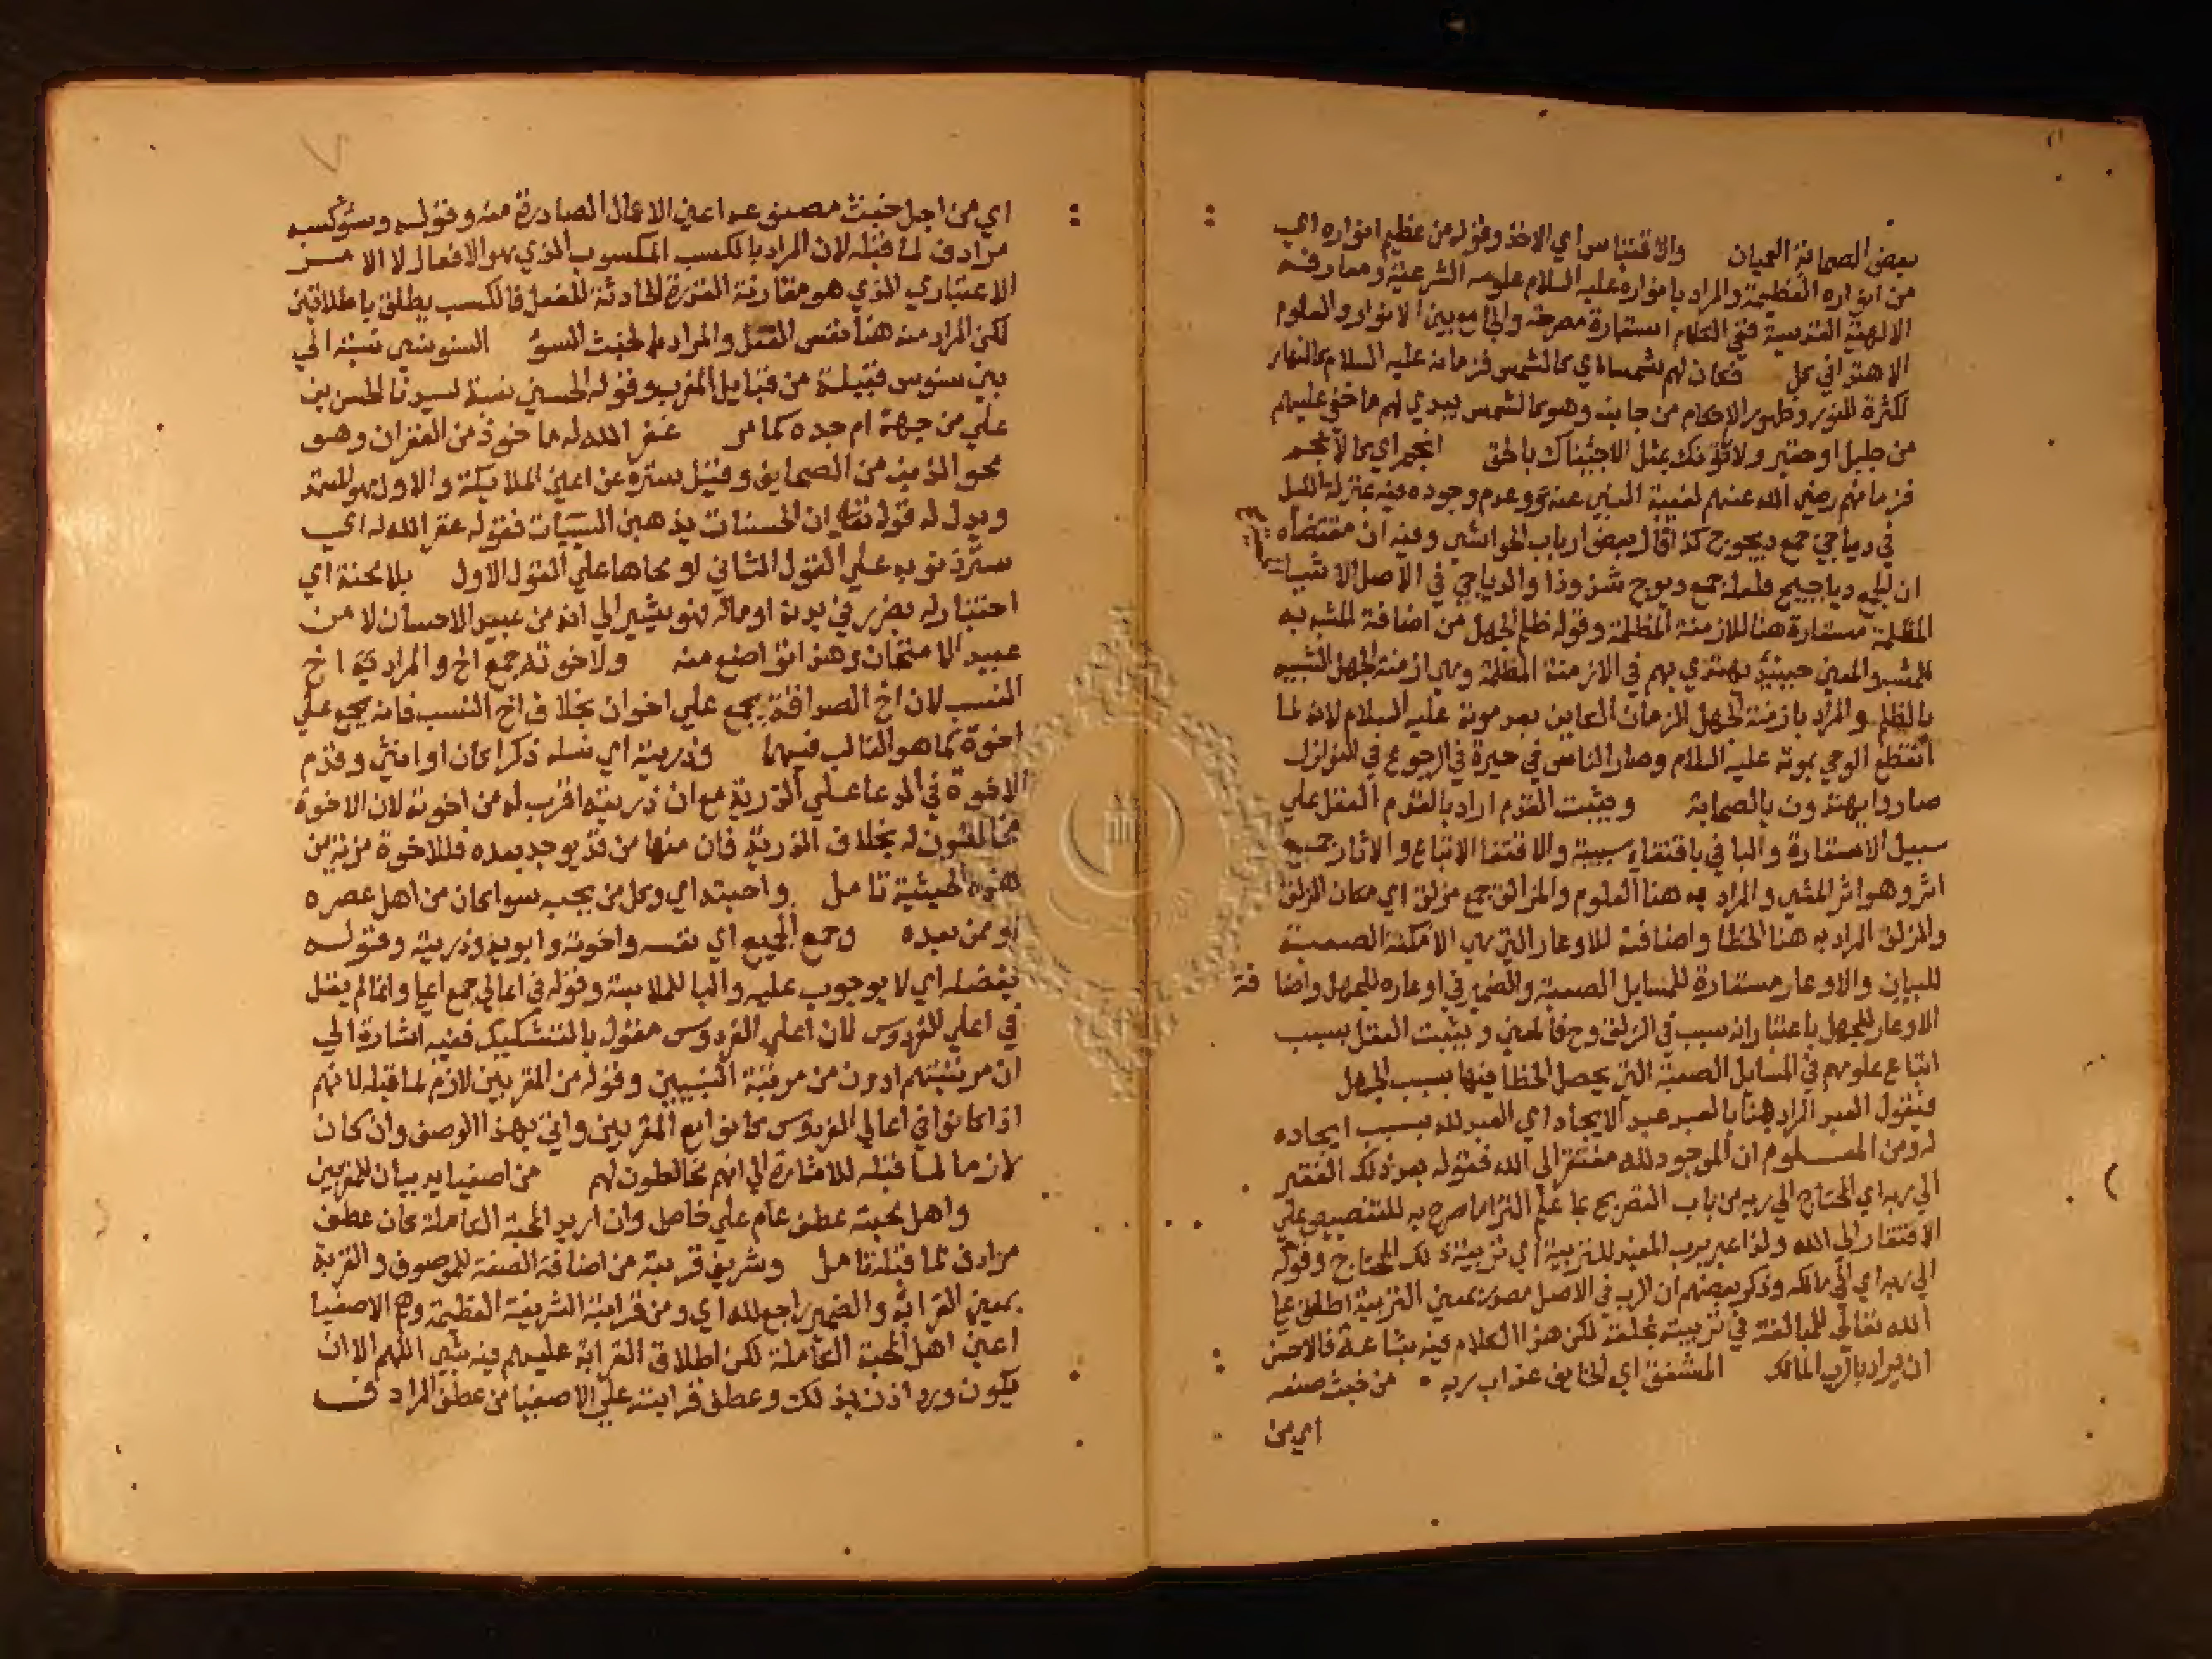 بعض الصحابة العيان والاقتباس اي الاخذ وقوله من عظيم انواره اي
من انواره العظيمة والمراد بانواره عليه السلام علومه الشرعية ومعارفه
الالهية القدسية ففي الكلام استعارة مصرحة والجامع بين الانوار والعلوم
الاهتدا في كل فكان لهم شمسا اي كالشمس فزمانه عليه السلام كالنهار
لكثرة النور وظهور الاحكام من جانبه وهو كالشمس يبدي لهم ما خفي عليهم
من جليل او حقير ولا ياتونك بمثل الا جئناك بالحق انجم اي كالانجم
فزمانهم رضي الله عنهم لغيبة النبي عنه وعدم وجوده فيه بمنزلة الليل
في دياجي جمع ديجوج كذا قال بعض ارباب الحواشي وفيه ان مقتضاه
ان يكون دياجيج فلعله جمع ديوج شذوذا والدياجي في الاصل الاشيا
المظلمة مستعارة هنا للازمنة المظلمة وقوله ظلم الجهل من اضافة المشبه به
للمشبه والمعني حينيذ يهتدي بهم في الازمنة المظلمة وهي ازمنة الجهل الشبيه
بالظلم والمراد بازمنة الجهل الزمان الكاين بعد موته عليه السلام لانه لما
انقطع الوحي بموته عليه السلام وصار الناس في حيرة في الرجوع في النوازل
صاروا يهتدون بالصحابة ويثبت القدم اراد بالقدم العقل علي
سبيل الاستعارة والبا في باقتفاء سببية والاقتفا الاتباع والاثار جمع
اثر وهو اثر المشي والمراد به هنا العلوم والمزالق جمع مزلق اي مكان الزلق
والزلق المراد به هنا الخطا واضافته للاوعار التي هي الامكنة الصعبة
للبيان والاوعار مستعارة للمسايل الصعبة والضمير في اوعاره للجهل واضافة
الاوعار للجهل باعتبار انه سبب في الزلق وح فالمعني ويثبت العقل بسبب
اتباع علومهم في المسايل الصعبة التي يحصل الخطا فيها بسبب الجهل
فيقول العبد المراد هنا بالعبد عبد الايجاد اي العبد لله بسبب ايجاده
له ومن المعلوم ان الموجود لله مفتقر الي الله فقوله بعد ذلك الفقير
الي ربه اي المحتاج الي ربه من باب التصريح بما علم التزاما صرح به للتنصيص علي
الافتقار الي الله ولذا عبر برب المفيد للتربية اي تربية ذلك المحتاج وقوله
الي ربه اي الي مالكه وذكر بعضهم ان الرب في الاصل مصدر بمعني التربية اطلق علي
الله تعالي للمبالغة في تربيته لخلقه لكن هذا الكلام فيه بشاعة فالاحسن
ان يراد بالرب المالك المشفق اي الخايف عذاب ربه من خبث صنعه
اي من
اي من اجل خبث مصنوعه اعني الاعمال الصادرة منه وقوله وسؤ كسبه
مرادف لما قبله لان المراد بالكسب المكسوب الذي هو الافعال لا الامر
الاعتباري الذي هو مقارنة القدرة الحادثة للفعل فالكسب يطلق باطلاقين
لكن المراد منه هنا نفس الفعل والمراد بالخبث السؤ السنوسي نسبة الي
بني سنوس قبيلة من قبايل المغرب وقوله الحسني نسبة لسيدنا الحسن بن
علي من جهة ام جده كما مر غفر الله له ماخوذ من الغفران وهو
محو الذنب من الصحايف وقيل ستره عن اعين الملايكة والاول هو المعتمد
ويدل له قوله تعالي ان الحسنات يذهبن السييات فقوله غفر الله له اي
ستر ذنوبه علي القول الثاني او محاها علي القول الاول بلا محنة اي
اختبار له بضرر في بدنه او ماله فهو يشير الي انه من عبيد الاحسان لا من
عبيد الامتحان وهذا تواضع منه ولاخوته جمع اخ والمراد به اخ
النسب لان اخ الصداقة يجمع علي اخوان بخلاف اخ النسب فانه يجمع علي
اخوة كما هو الغالب فيهما وذريته اي نسله ذكرا كان او انثي وقدم
الاخوة في الدعا علي الذرية مع ان ذريته اقرب له من اخوته لان الاخوة
مخالطون له بخلاف الذرية فان منها من قد يوجد بعده فللاخوة مزية من
هذه الحيثية تامل واحبته اي وكل من يحب سوا كان من اهل عصره
او ممن بعده وجمع الجميع اي نفسه واخوته وابويه وذريته وقوله
بفضله اي لا بوجوب عليه والبا للملابسة وقوله في اعالي جمع اعلي وانما لم يقل
في اعلي الفردوس لان اعلي الفردوس مقول بالتشكيك ففيه اشارة الي
ان مرتبتهم ادون من مرتبة النبيين وقوله من المقربين لازم لما قبله لانهم
اذا كانوا في اعالي الفردوس كانوا مع المقربين واتي بهذا الوصف وان كان
لازما لما قبله للاشارة الي انهم مخالطون لهم من اصفيايه بيان للمقربين
واهل محبته عطف عام علي خاص وان اريد المحبة الكاملة كان عطف
مرادف لما قبله تامل وشريف قربته من اضافة الصفة للموصوف والقربة
بمعني القرابة والضمير راجع لله اي ومن قرابته الشريفة العظيمة وهم الاصفيا
اعني اهل المحبة الكاملة لكن اطلاق القرابة عليهم فيه شي اللهم الا ان
يكون ورد اذن بذلك وعطف قرابته علي الاصفيا من عطف المرادف